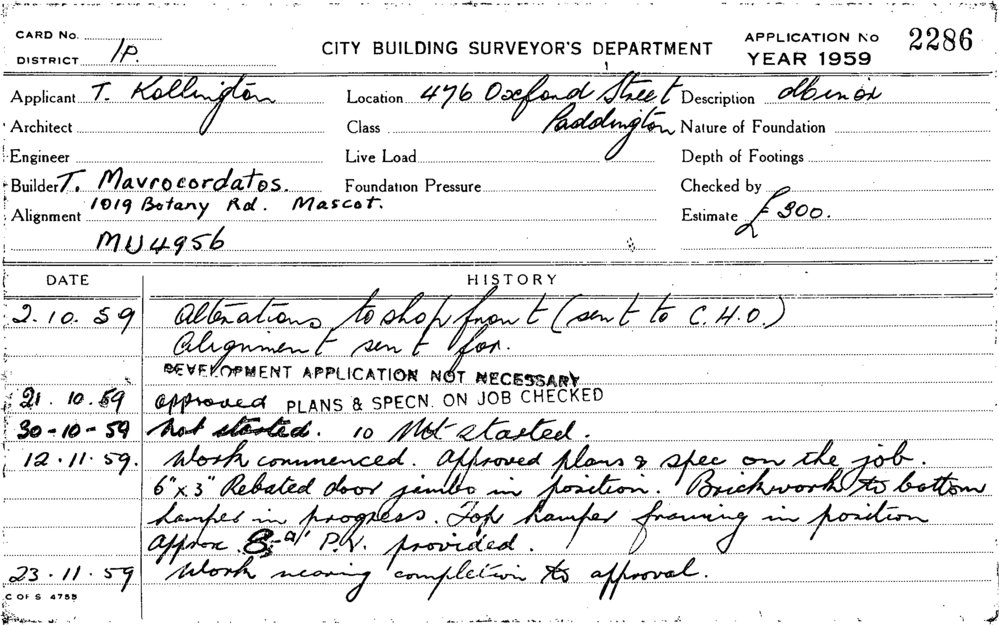 CARD No.
DISTRICT 1P.
CITY BUILDING SURVEYOR'S DEPARTMENT
APPLICATION No 2286
YEAR 1959
Applicant T. Kollington Location 476 Oxford Street Description
Architect Class Paddington Nature of Foundation
Engineer Live Load Depth of Footings
Builder T. Mavrocordatos. Foundation Pressure Checked by
Alignment 1019 Botany Rd. Mascot. Estimate £300.
MU4956
DATE HISTORY
2.10.59 Alterations to shop front (sent to C.H.O.)
Alignment sent for.
DEVELOPMENT APPLICATION NOT NECESSARY
21.10.59 approved PLANS & SPECN. ON JOB CHECKED
30-10-59 Not started. 10 Not started.
12.11.59. Work commenced. Approved plans & spec on the job.
6"x3" Rebated door jambs in position. Brickwork to bottom
hamper in progress. Top hamper framing in position
approx P.V. provided.
23.11.59 Work nearing completion to approval.
C OF S 4755